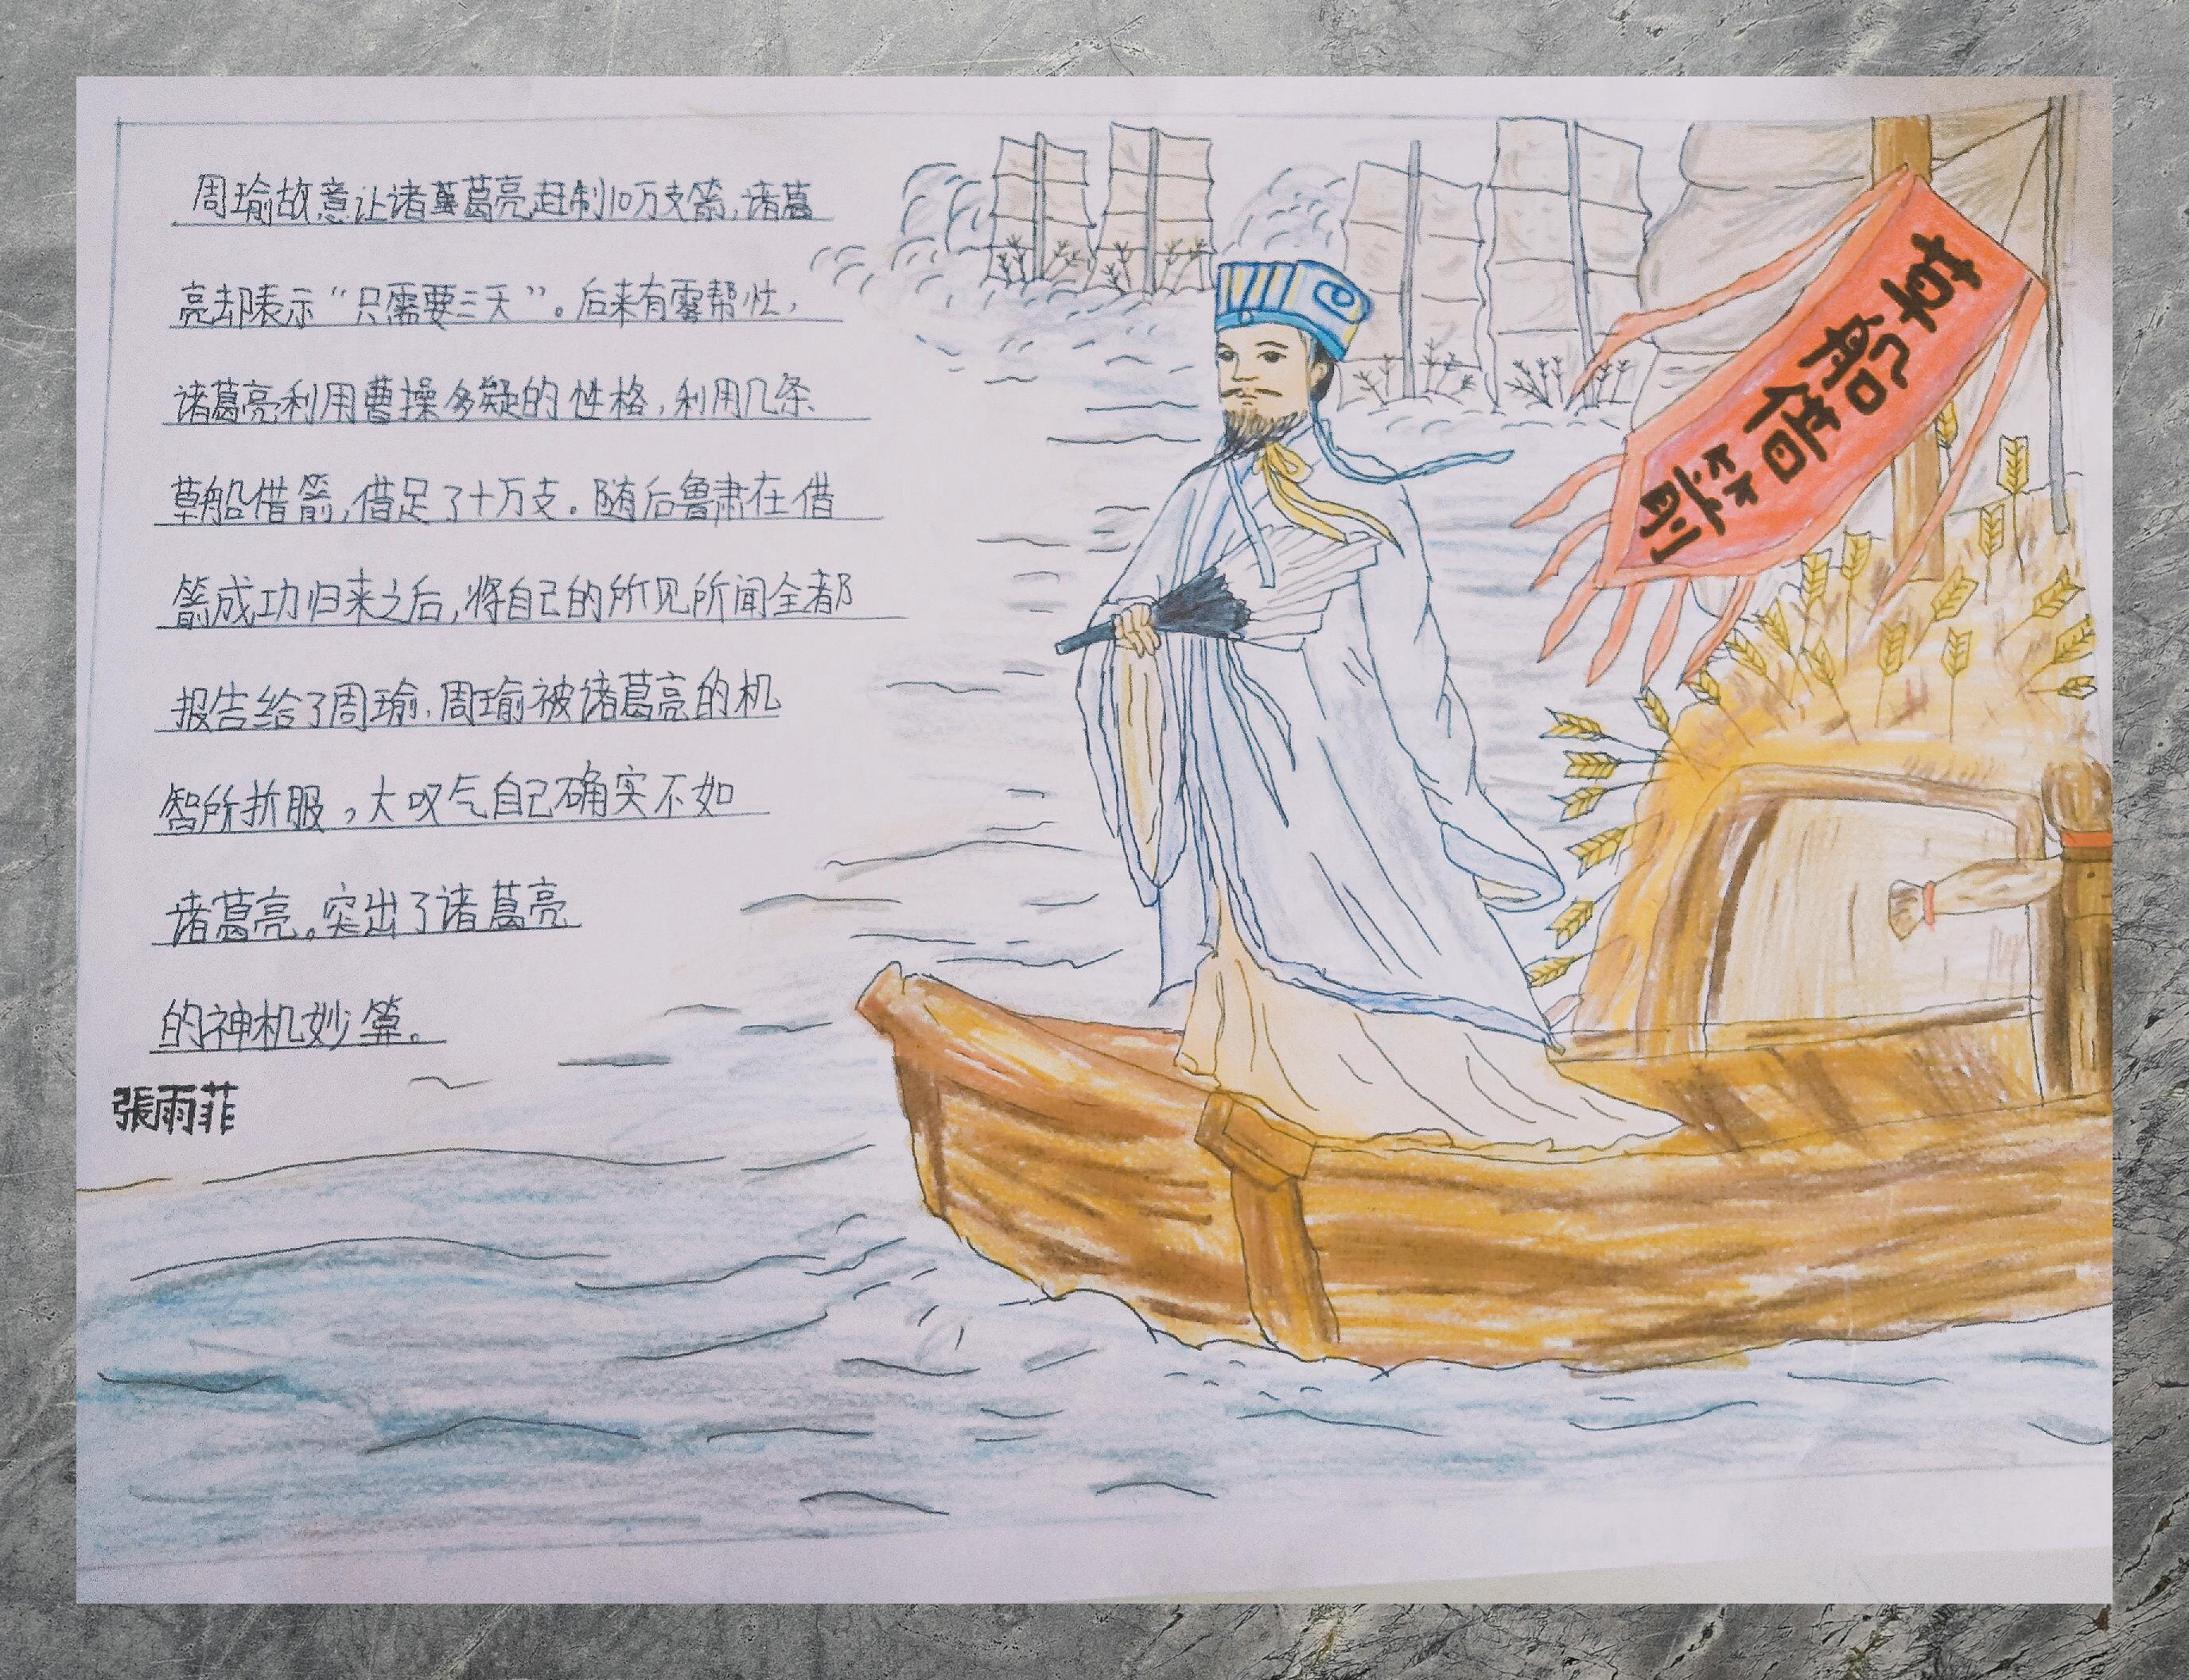 周瑜故意让诸葛亮赶制10万支箭,诸葛
亮却表示“只需要三天”。后来有雾帮忙,
诸葛亮利用曹操多疑的性格,利用几条
草船借箭,借足了十万支。随后鲁肃在借
箭成功归来之后,将自己的所见所闻全都
报告给了周瑜,周瑜被诸葛亮的机
智所折服,大叹气自己确实不如
诸葛亮。突出了诸葛亮
的神机妙算。
張雨菲
草船借箭